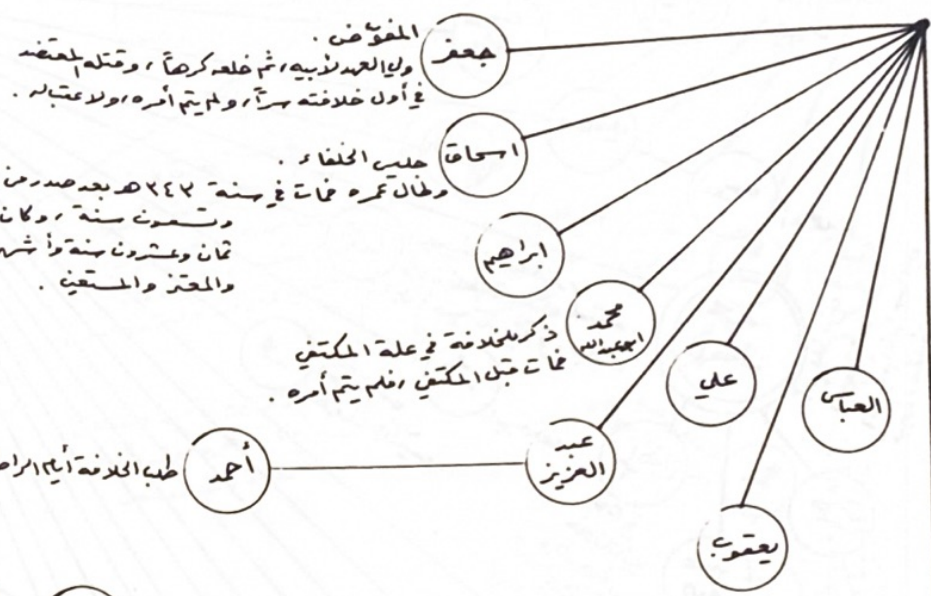 المفوّض .
ولي العهد لأبيه، ثم خلعه كرهاً، وقتله المعتضد
في أول خلافته سراً، ولم يتم أمره، ولا عقب له .
جعفر
جليس الخلفاء .
وطال عمره فمات في سنة ٣٤٣ هـ بعد صدر من
وتسعون سنة، وكان
ثمان وعشرون سنة وأشهر
والمعتز والمستعين .
اسحاق
ابراهيم
محمد
ابو عبدالله
ذكر للخلافة في علة المكتفي
فمات قبل المكتفي، فلم يتم أمره .
علي
العباس
عبد
العزيز
أحمد
طلب الخلافة أيام
يعقوب